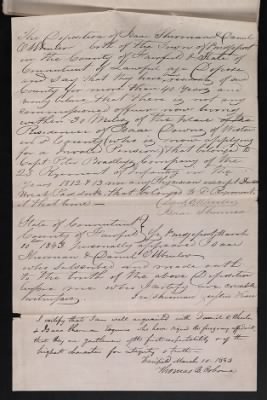 The Deposition of Isaac Sherman & Daniel
O. Wheeler both of the Town of Bridgeport
in the County of Fairfield & State of
Connecticut of Lawful age Depose
and Say that they have resided in said
County for more than 40 years and
Know that there is not any
commissioned officer now living
within 20 Miles of the place of the
Residence of Isaac Downs of Weston
in said County (who is now applying
for a Pension) that belonged to
Capt. Peter Bradleys Company of the
23 Regiment of Infantry in the
Years 1812 & 13 nor any Physician
that
at that time
Daniel O Wheeler
Isaac Sherman
State of Connecticut
County of Fairfield ss Bridgeport March
10th 1853 Personally appeared Isaac
Sherman & Daniel O Wheeler
who subscribed and made oath
to the truth of the above Deposition
before me who I certify are credible
Witnesses
Justice Peace
I certify that I am well acquainted with Daniel O. Wheeler
& Isaac Sherman Esquires who have signed the foregoing affidavit,
that they are gentlemen of the first respectability & of the
highest character for integrity & truth.
Fairfield March 10. 1853
Thomas B. Osborne